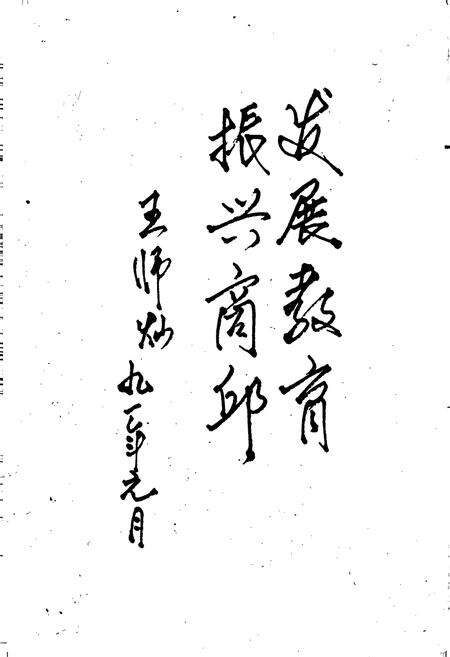 发展教育
振兴商邱
王师灿 九一年元月